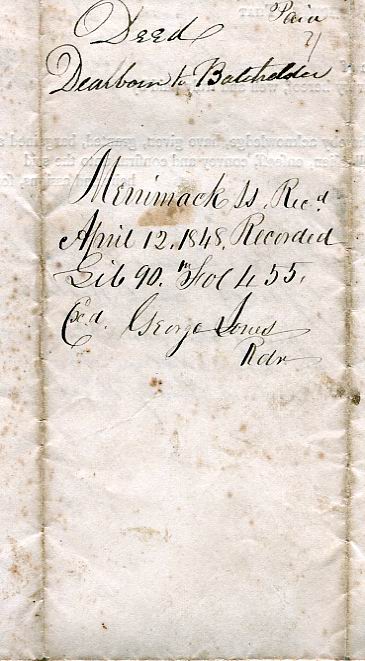 Deed
Paid
Dearborn to Batchelder
Merrimack Ss, Rec.d
April 12, 1848, Recorded
Lib 90. Fol 455,
Exd. George Jones
Rdr